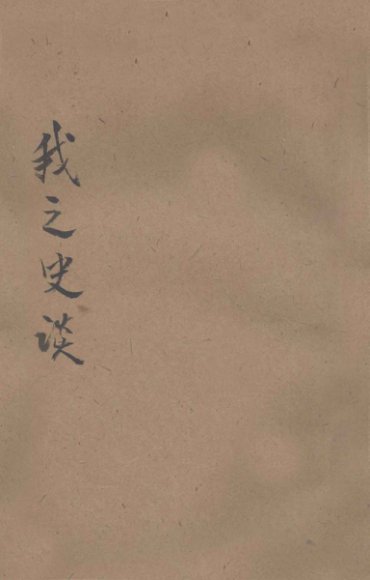 我之史談